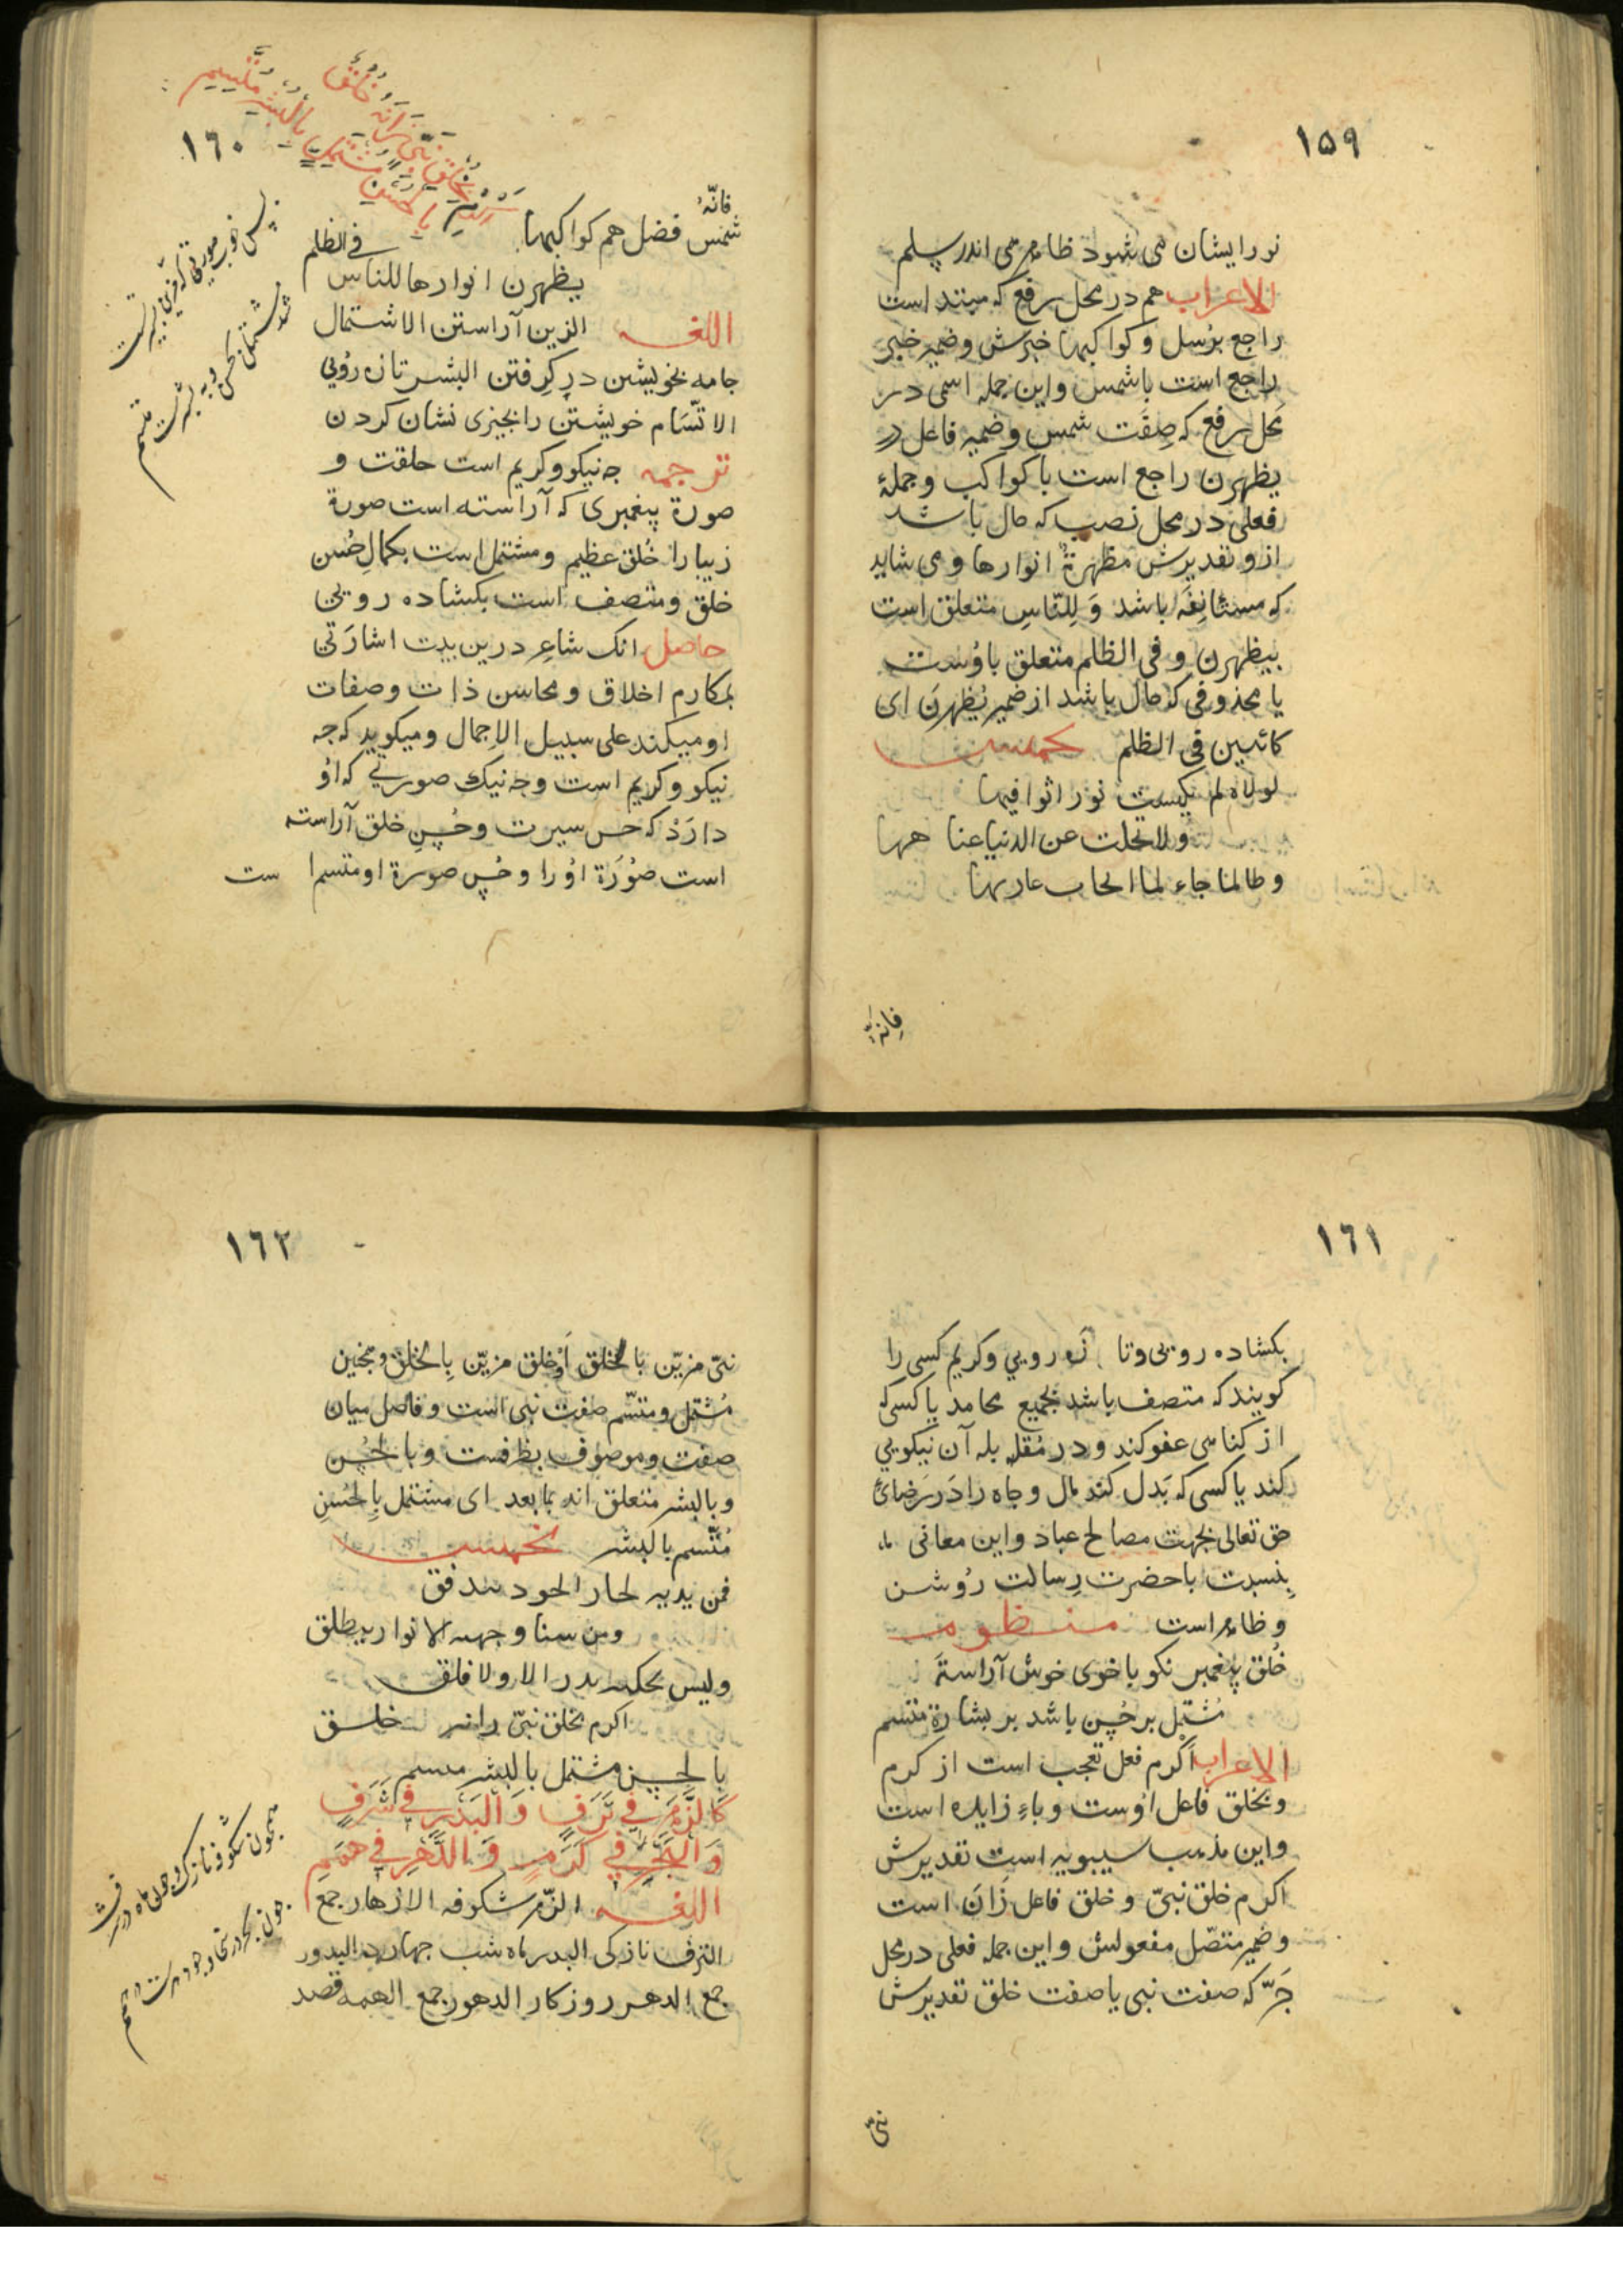 ١٥٩
نور ایشان می شود ظاهر می اندر ظلم
الاعراب هم در محل رفع که مبتداست
راجع برُسل و کواکبها خبرش و ضمیر خبر
راجع است با شمس و این جمله اسمی در
محل رفع که صِفَت شمس و ضمیر فاعل در
یظهرن راجع است با کواکب و جملهٔ
فعلی در محل نصب که حال باشد
ازو تقدیرش مظهرةً انوارها و می شاید
که مستانِفَه باشد وَ لِلنّاسِ متعلق است
بیظهرن و فی الظلم متعلق باوُست
یا محذوفی که حال باشد از ضمیر یُظهرنَ ای
کائنین فی الظلم تخمیس
لولاه لم یکتست نورا ثوافیها
ولا انجلت عن الدنیا عنا
وطالما جاء لما
فانّهُ
١٦٠
اَکْرِمْ بِخَلْقِ نَبِیٍّ زَانَهُ خُلُقٌ
بِالْحُسْنِ مُشْتَمِلٍ بِالْبِشْرِ مُتَّسِمِ
فانّهُ
شمس فضل هم کواکبها
یظهرن انوارها للناس فی الظلم
اللغه الزین آراستن الاشتمال
جامه بخویشن در کِرفتن البشر تازه رُویی
الاتّسَام خویشتن را بجیزی نشان کردن
ترجمه جه نیکو و کریم است خلقت و
صورة پیغمبری که آراسته است صورة
زیبا را خُلق عظیم و مشتمل است بکمالِ حُسن
خلق و متصف است بکشاده رویی
حاصل انک شاعِر درین بیت اشارَتی
بمکارم اخلاق و محاسن ذات و صفات
او میکند علی سبیل الاجمال و میکوید که جه
نیکو و کریم است وجه نیک صورتی که اوُ
دارَدْ که حس سیرت و حُسنِ خلق آراسته
است صُورَة اوُ را و حُسن صورة او متسم است
١٦١
بکشاده رویی و تازه رویی و کریم کسی را
کویند که متصف باشد بجمیع محامد یا کسی که
از کناهی عفو کند و در مُقابله آن نیکویی
کند یا کسی که بَدل کند مال و جاه را دَر رَضائ
حق تعالی بجهت مصالح عباد و این معانی
بِنسبت با حضرت رِسالت رُوشن
و ظاهر است منظومه
خُلق پیغمبر نکو با خوی خوش آراستَه
مُشتمل بر حُسن باشد بر بشارة متسم
الاعراب اَکرم فعل تعجب است از کرم
و بخلق فاعل اوُست و باءِ زایده است
و این مذهب سیبویه است تقدیرش
اکرم خلق نبیّ و خلق فاعل زَانَ است
و ضمیر متصّل مفعولش و این جمله فعلی در محل
جَرّ که صفت نبی یا صفت خلق تقدیرش
نبیّ
١٦٢
نبیّ مزیّن بالخلق اَوْ خلق مزیّن بِالخلق و همچنین
مُشتمل و متسّم صفت نبی است و فاصل میان
صفت و موصوف بظرفست و بالحُسن
و بالبشر متعلق اند بما بعد ای مشتمل بِالحُسنِ
مُتّسم بالبشر تخمیس
فمن یدیه لحار الجود مندفق
ومن سنا وجهه الانوار ینطلق
ولیس یحکیه بدر الا ولا فلق
اکرم بخلق نبیّ زانه خلق
بالحسن مشتمل بالبشر متسم
كَالزَّهْرِ فِي تَرَفٍ وَ الْبَدْرِ فِي شَرَفٍ
وَ الْبَحْرِ فِي كَرَمٍ وَ الدَّهْرِ فِي هِمَمِ
اللغه الزّهر شکوفه الازهار جمع
الترف نازکی البدر ماه شب جهارده البدور
جمع الدهر روزکار الدهور جمع الهمه قصد
همچون شکوفه نازک و چون ماه در شرف